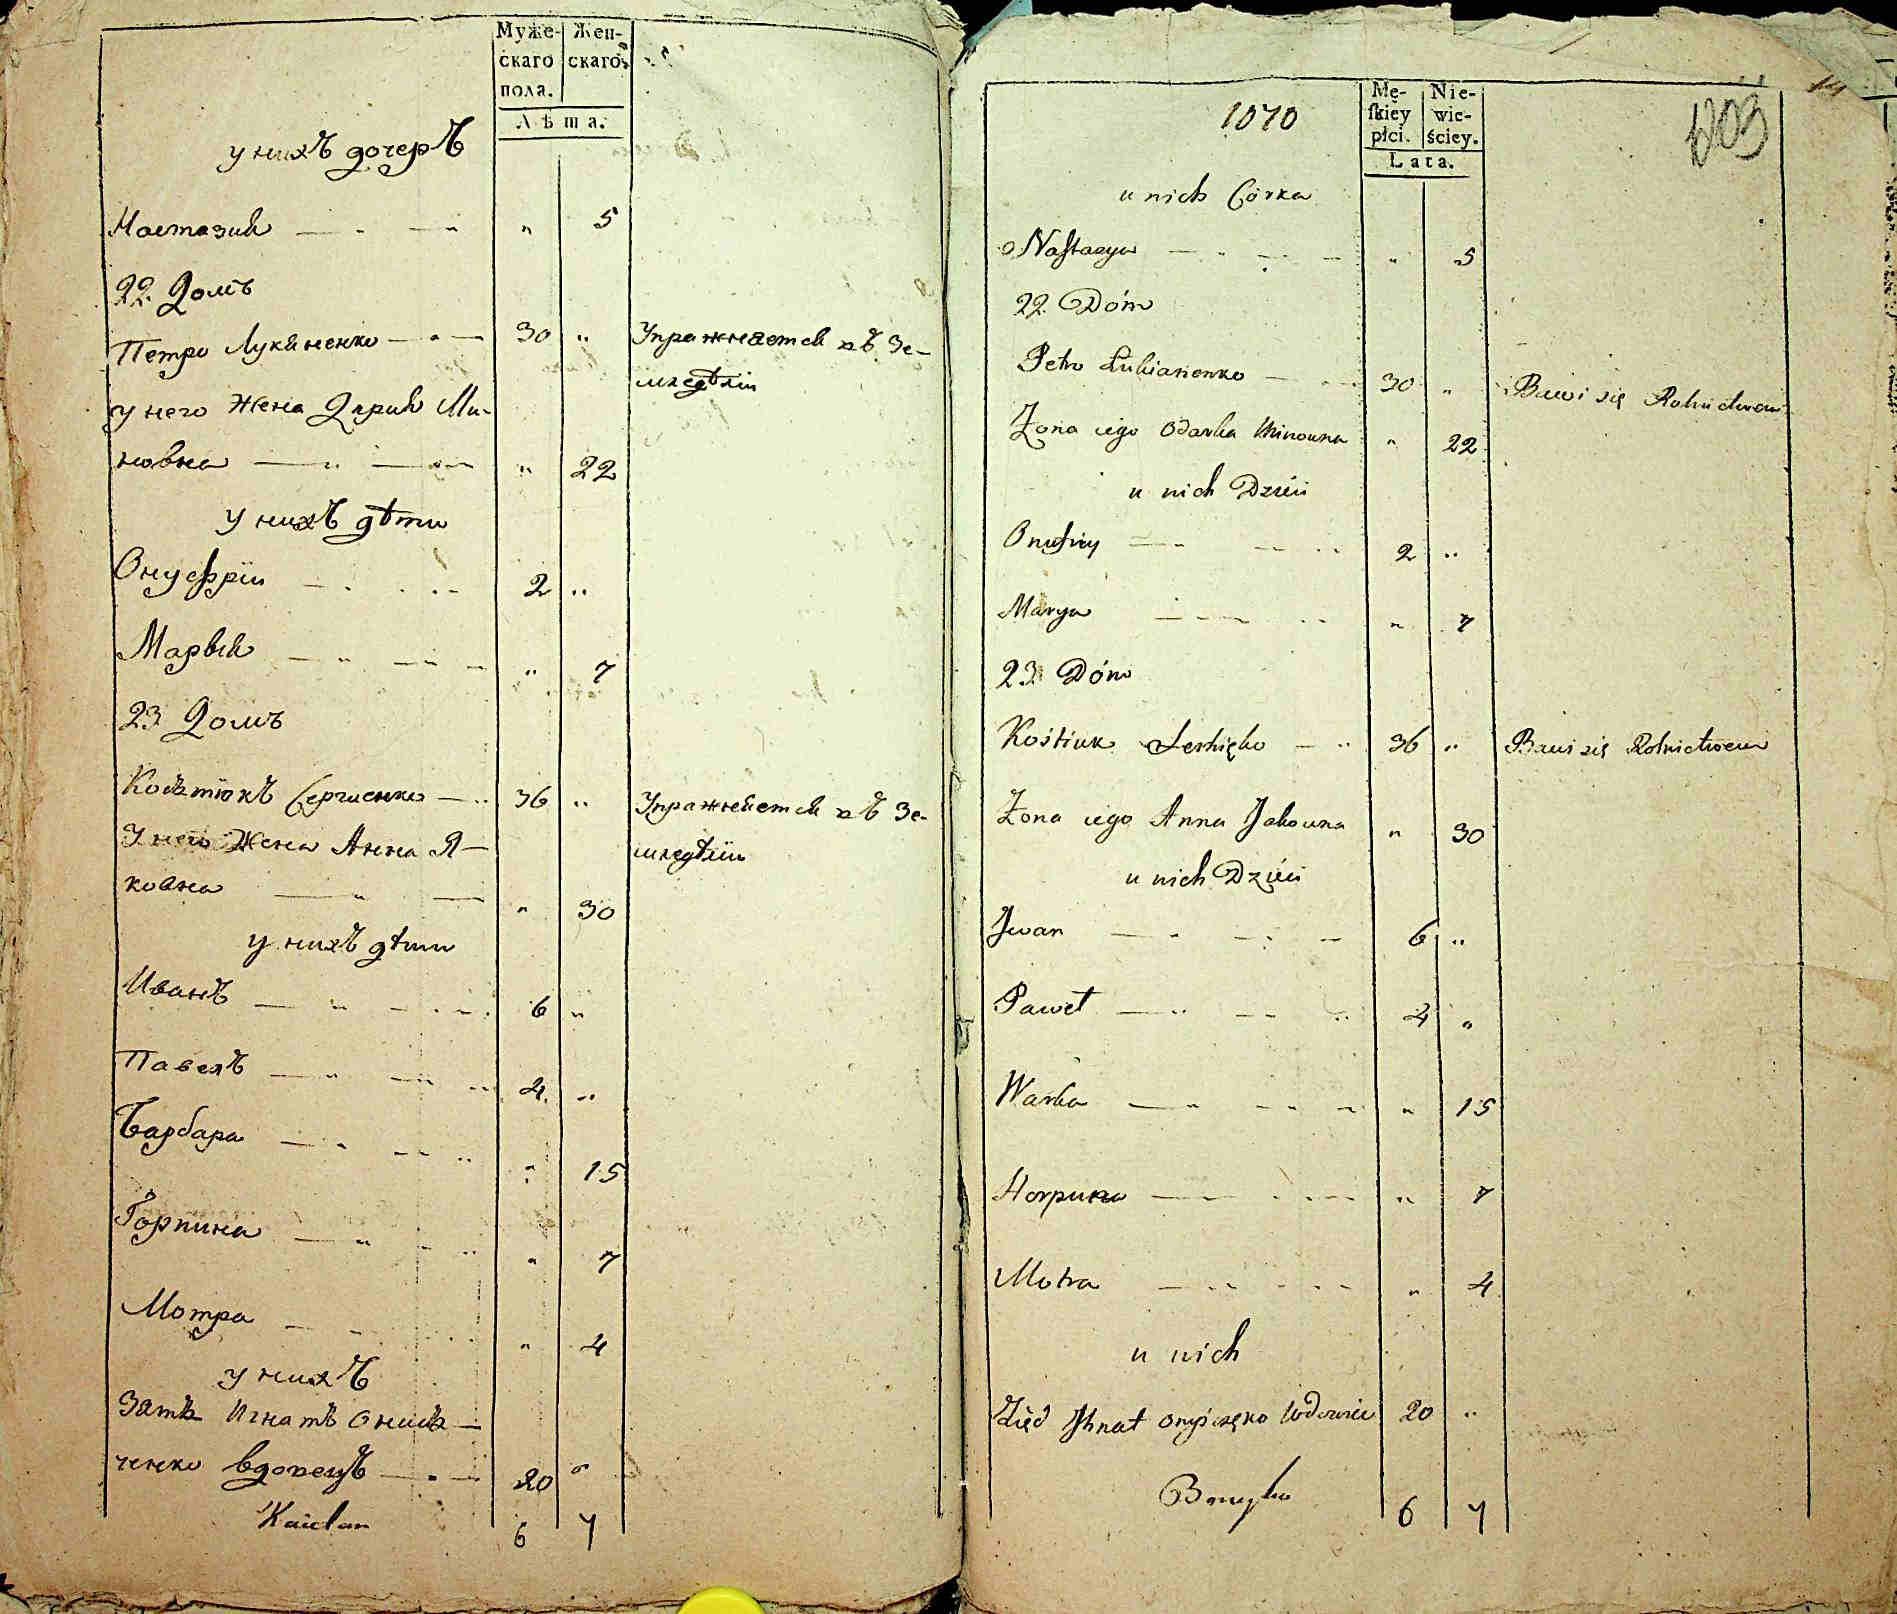 Муже-
скаго
пола.
Жен-
скаго
Лѣта.
у нихъ дочерь
Настазия 5
22. Домъ
Петро Лукяненко 30 Упражняется въ Зе-
мледѣлiи
у него Жена Дария Ми-
новна 22
у нихъ дѣти
Онуфрiи 2
Марья 7
23 Домъ
Костюкъ Сергиенко 36 Упражняется въ Зе-
мледѣлiи
У него Жена Анна Я-
ковна 30
у нихъ дѣти
Иванъ 6
Павелъ 4
Варвара 15
Горпина 7
Мотра 4
у нихъ
Зять Игнатъ Онись-
ченко вдовецъ 20
6 7
1070
Mę-
skiey
płci.
Nie-
wie-
ściey.
Lata.
203
14
u nich Córka
Nastazya 5
22 Dóm
Petro Łukianenko 30 Bawi się Rolnictwem
Żona iego Odarka Minowna 22
u nich Dzieci
Onufriy 2
Marya 7
23 Dóm
Kostiuk Serhięko 36 Bawi się Rolnictwem
Żona iego Anna Jakowna 30
u nich Dzieci
Jwan 6
Paweł 4
Warka 15
Horpina 7
Motra 4
u nich
Zięć Jhnat Onysczęko Wdowiec 20
6 7